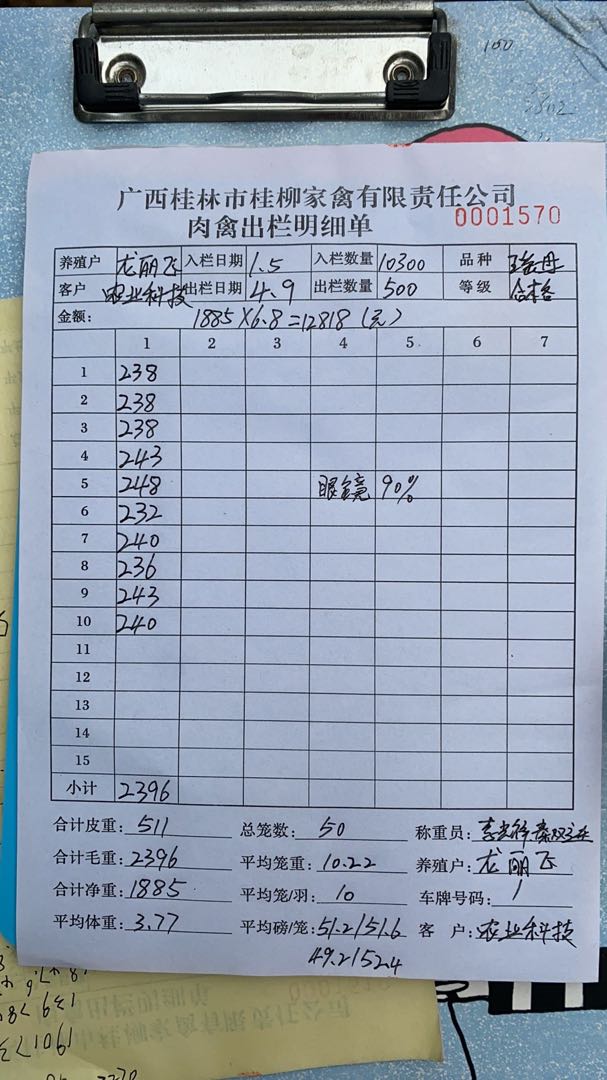 广西桂林市桂柳家禽有限责任公司
肉禽出栏明细单 0001570
养殖户 龙丽飞 入栏日期 1.5 入栏数量 10300 品种
客户 农业科技 出栏日期 4.9 出栏数量 500 等级 合格
金额: 1885×6.8=12818(元)
1 2 3 4 5 6 7
1 238
2 238
3 238
4 243
5 248 眼镜 90%
6 232
7 240
8 236
9 243
10 240
11
12
13
14
15
小计 2396
合计皮重: 511 总笼数: 50 称重员:
合计毛重: 2396 平均笼重: 10.22 养殖户: 龙丽飞
合计净重: 1885 平均笼/羽: 10 车牌号码: /
平均体重: 3.77 平均磅/笼: 51.2/51.6 客 户: 农业科技
49.2/52.4
100